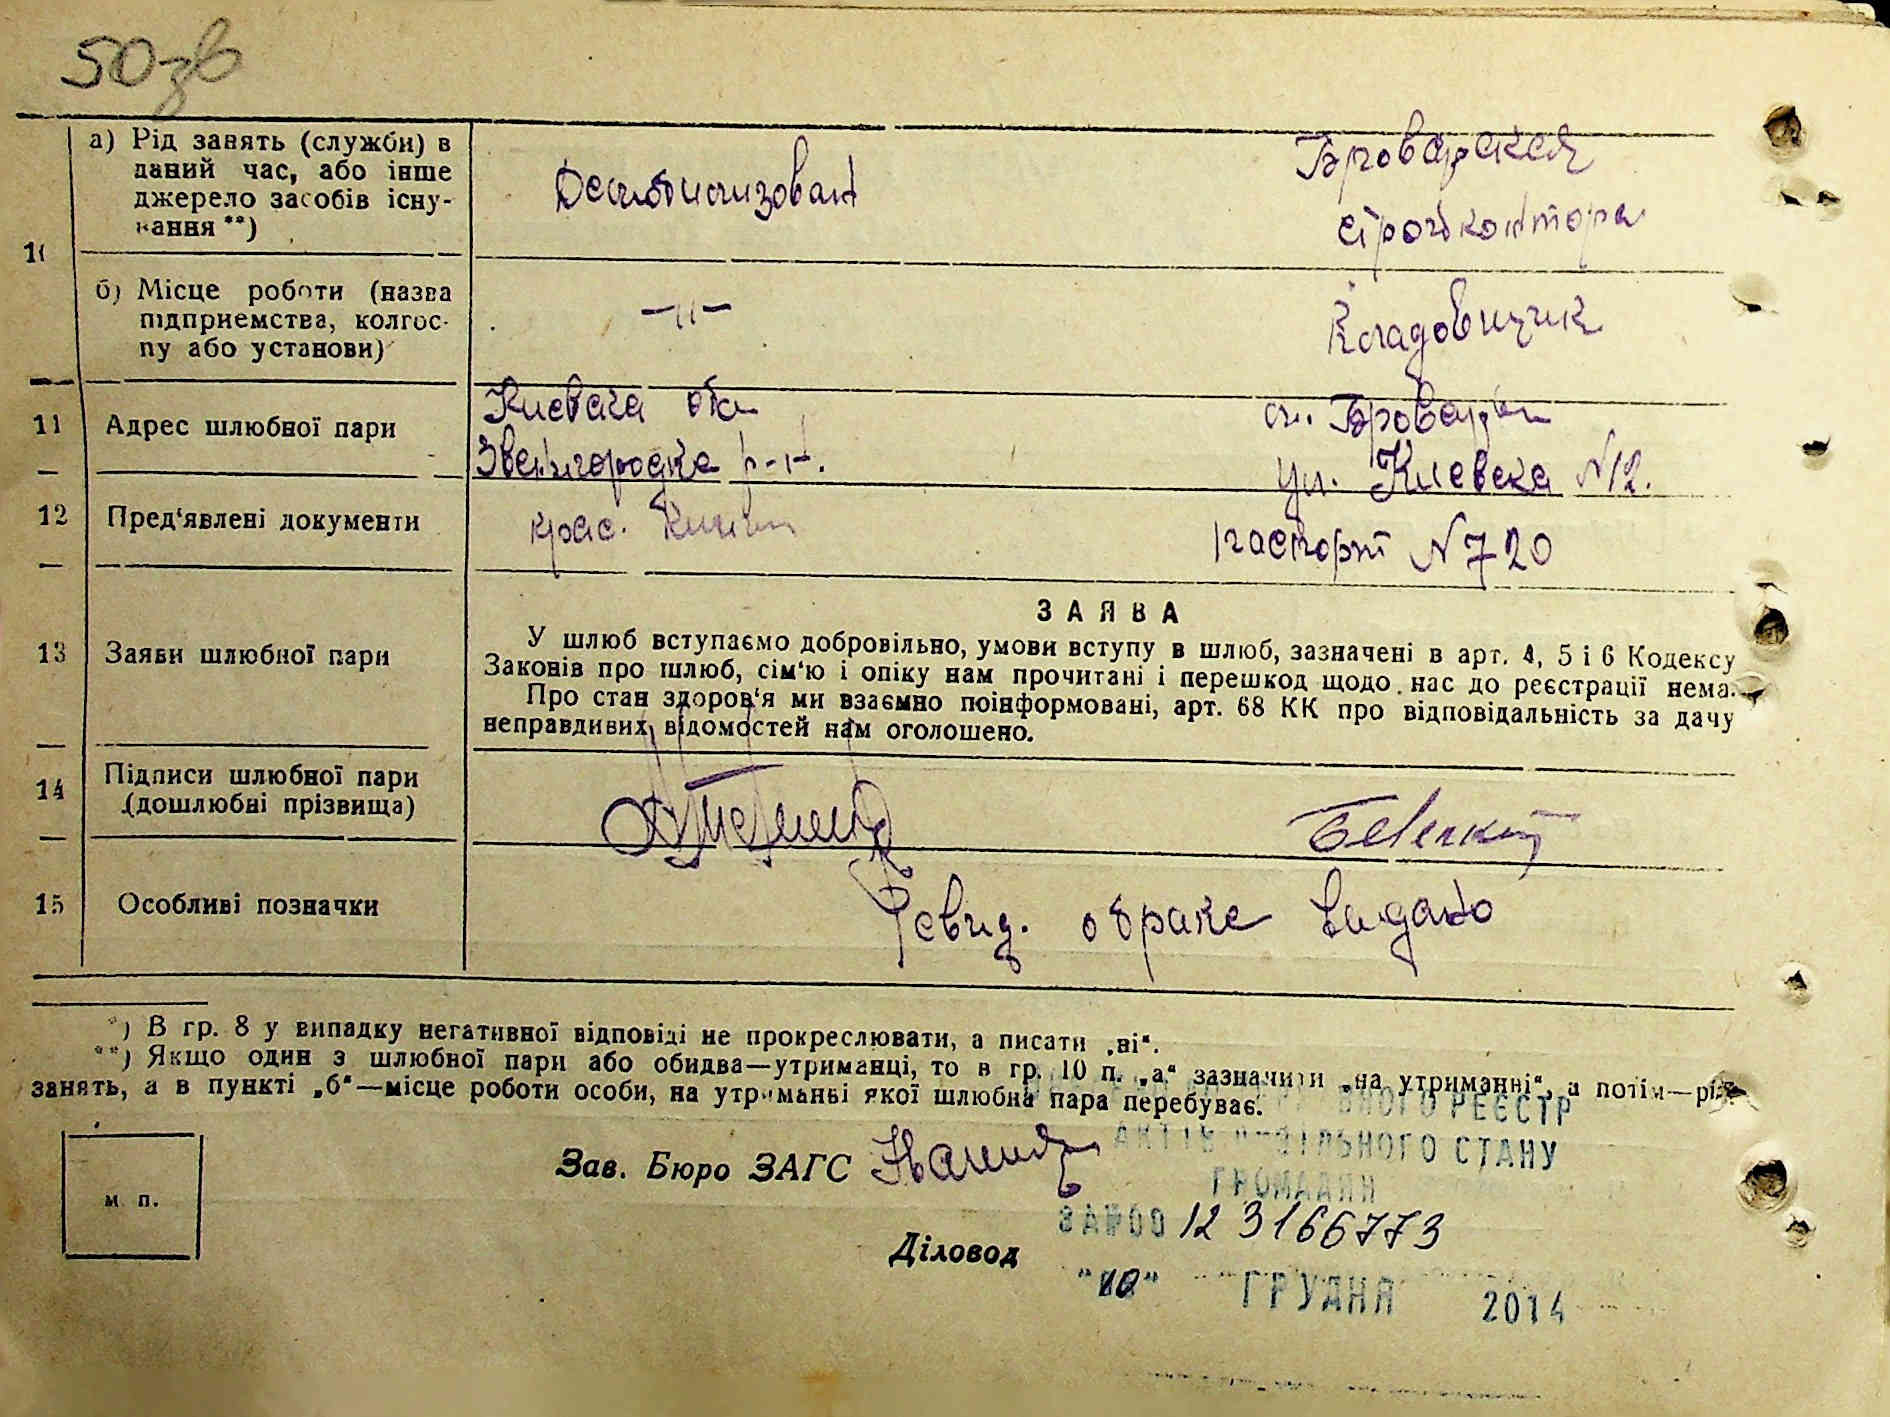 50зв
а) Рід занять (служби) в
даний час, або інше
джерело засобів існу-
вання **)
Демобилизован
Броварская
стройконтора
10
б) Місце роботи (назва
підприємства, колгос-
пу або установи)
—"—
Кладовщик
11
Адрес шлюбної пари
Киевска обл
Звенигородка р-н.
ст. Бровары
ул. Киевска N12.
12
Пред'явлені документи
крас.
паспорт N720
13
Заяви шлюбної пари
ЗАЯВА
У шлюб вступаємо добровільно, умови вступу в шлюб, зазначені в арт. 4, 5 і 6 Кодексу
Законів про шлюб, сім'ю і опіку нам прочитані і перешкод щодо нас до реєстрації нема.
Про стан здоров'я ми взаємно поінформовані, арт. 68 КК про відповідальність за дачу
неправдивих відомостей нам оголошено.
14
Підписи шлюбної пари
(дошлюбні прізвища)
15
Особливі позначки
Свид. о браке видано
*) В гр. 8 у випадку негативної відповіді не прокреслювати, а писати „ні“.
**) Якщо один з шлюбної пари або обидва—утриманці, то в гр. 10 п. „а“ зазначити „на утриманні“, а потім—рід
занять, а в пункті „б“—місце роботи особи, на утриманні якої шлюбна пара перебуває.
ВНОГО РЕЄСТР
АКТІВ ЦИВІЛЬНОГО СТАНУ
ГРОМАДЯН
м. п.
Зав. Бюро ЗАГС
ЗА №00 12 3166773
Діловод
"10" ГРУДНЯ 2014